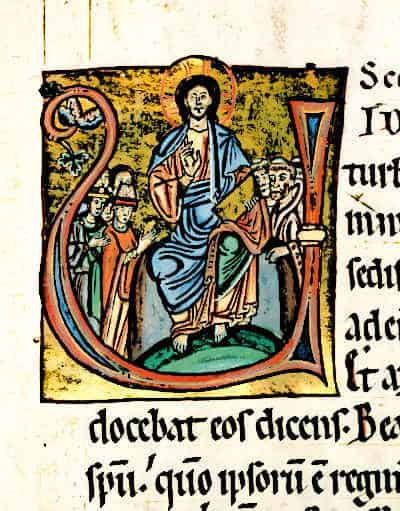 Sec
turb
sedis
ad ei
Et a
docebat eos dicens. Bea
spū. qūo ipsorū ē regni